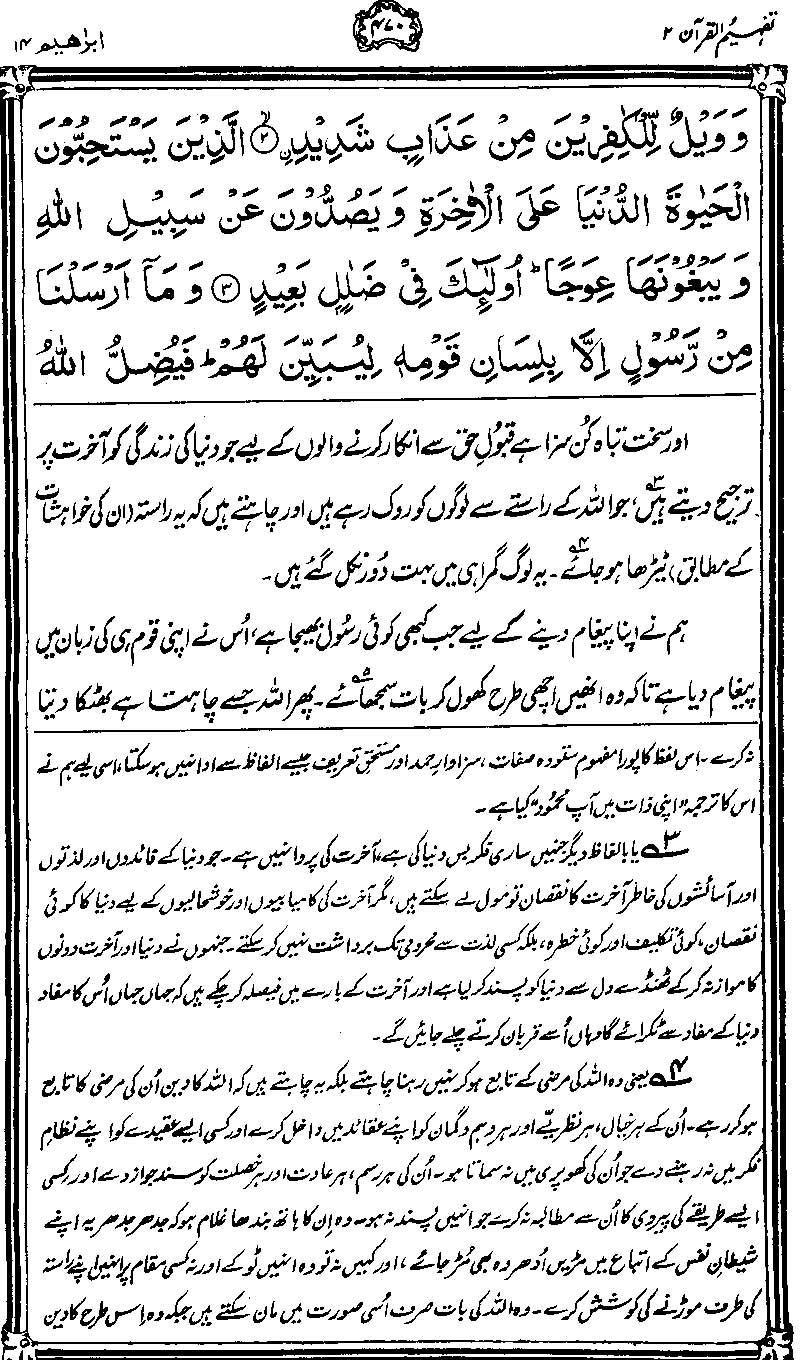 تفہیم القرآن ۲
۴۷۰
ابراھیم ۱۴
وَوَيْلٌ لِّلْكٰفِرِيْنَ مِنْ عَذَابٍ شَدِيْدِ ۙ﴿۲﴾ الَّذِيْنَ يَسْتَحِبُّوْنَ
الْحَيٰوةَ الدُّنْيَا عَلَى الْاٰخِرَةِ وَيَصُدُّوْنَ عَنْ سَبِيْلِ اللّٰهِ
وَيَبْغُوْنَهَا عِوَجًا ؕ اُولٰٓئِكَ فِيْ ضَلٰلٍۭ بَعِيْدٍ ﴿۳﴾ وَمَآ اَرْسَلْنَا
مِنْ رَّسُوْلٍ اِلَّا بِلِسَانِ قَوْمِهٖ لِيُبَيِّنَ لَهُمْ ؕ فَيُضِلُّ اللّٰهُ
اور سخت تباہ کُن سزا ہے قبولِ حق سے انکار کرنے والوں کے لیے جو دنیا کی زندگی کو آخرت پر
ترجیح دیتے ہیں۳، جو اللہ کے راستے سے لوگوں کو روک رہے ہیں اور چاہتے ہیں کہ یہ راستہ (ان کی خواہشات
کے مطابق) ٹیڑھا ہو جائے۴۔ یہ لوگ گمراہی میں بہت دُور نکل گئے ہیں۔
ہم نے اپنا پیغام دینے کے لیے جب کبھی کوئی رسُول بھیجا ہے، اُس نے اپنی قوم ہی کی زبان میں
پیغام دیا ہے تاکہ وہ انھیں اچھی طرح کھول کر بات سمجھائے۵۔ پھر اللہ جسے چاہتا ہے بھٹکا دیتا
نہ کرے۔ اس لفظ کا پورا مفہوم ستودہ صفات، سزاوارِ حمد اور مستحقِ تعریف جیسے الفاظ سے ادا نہیں ہو سکتا، اسی لیے ہم نے
اس کا ترجمہ ”اپنی ذات میں آپ محمُود“ کیا ہے۔
۳؎ یا بالفاظ دیگر جنہیں ساری فکر بس دنیا کی ہے، آخرت کی پروا نہیں ہے۔ جو دنیا کے فائدوں اور لذتوں
اور آسائشوں کی خاطر آخرت کا نقصان تو مول لے سکتے ہیں، مگر آخرت کی کامیابیوں اور خوشحالیوں کے لیے دنیا کا کوئی
نقصان، کوئی تکلیف اور کوئی خطرہ، بلکہ کسی لذت سے محرومی تک برداشت نہیں کر سکتے۔ جنہوں نے دنیا اور آخرت دونوں
کا موازنہ کر کے ٹھنڈے دل سے دنیا کو پسند کر لیا ہے اور آخرت کے بارے میں فیصلہ کر چکے ہیں کہ جہاں جہاں اُس کا مفاد
دنیا کے مفاد سے ٹکرائے گا وہاں اُسے قربان کرتے چلے جائیں گے۔
۴؎ یعنی وہ اللہ کی مرضی کے تابع ہو کر نہیں رہنا چاہتے بلکہ یہ چاہتے ہیں کہ اللہ کا دین اُن کی مرضی کا تابع
ہو کر رہے۔ اُن کے ہر خیال، ہر نظریّے اور ہر وہم وگمان کو اپنے عقائد میں داخل کرے اور کسی ایسے عقیدے کو اپنے نظامِ
فکر میں نہ رہنے دے جو اُن کی کھوپری میں نہ سماتا ہو۔ اُن کی ہر رسم، ہر عادت اور ہر خصلت کو سندِ جواز دے اور کسی
ایسے طریقے کی پیروی کا اُن سے مطالبہ نہ کرے جو انہیں پسند نہ ہو۔ وہ اِن کا ہاتھ بندھا غلام ہو کہ جدھر جدھر یہ اپنے
شیطانِ نفس کے اتباع میں مڑیں اُدھر وہ بھی مُڑ جائے، اور کہیں نہ تو وہ انہیں ٹوکے اور نہ کسی مقام پر انہیں اپنے راستہ
کی طرف موڑنے کی کوشش کرے۔ وہ اللہ کی بات صرف اُسی صورت میں مان سکتے ہیں جبکہ وہ اِس طرح کا دین